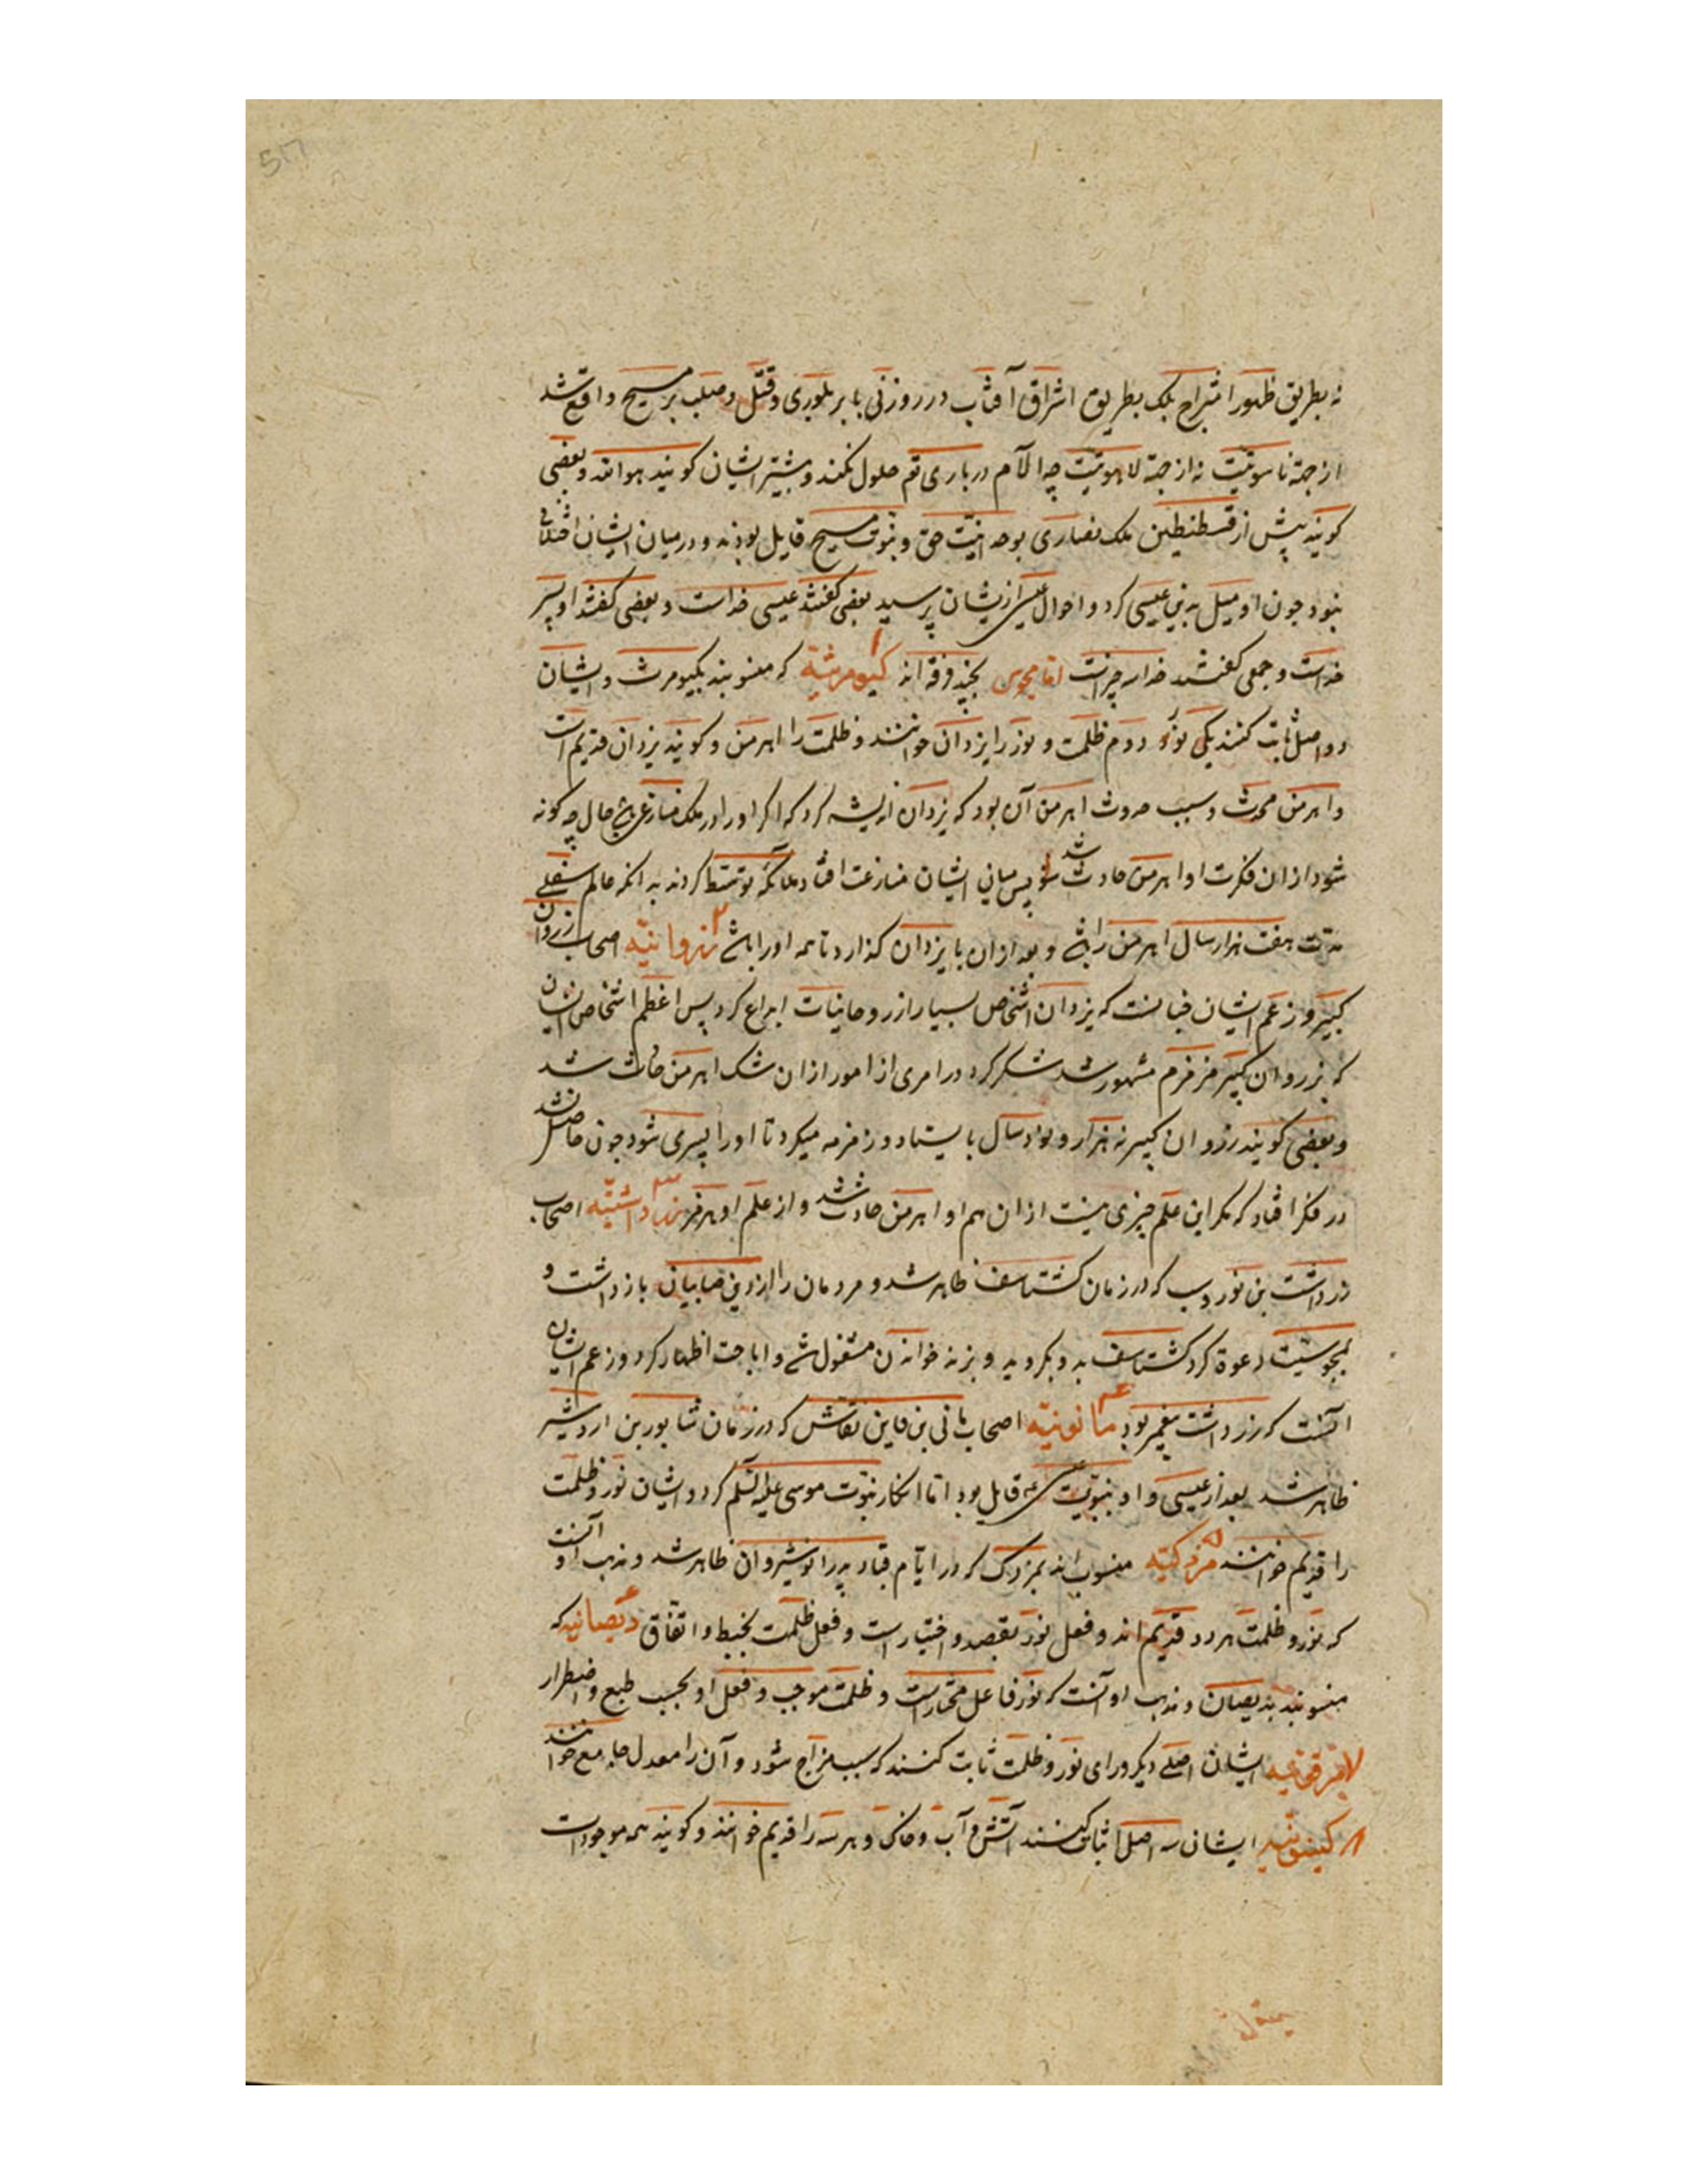 نه بطریق ظهور امتزاج بلک بطریق اشراق آفتاب در روزنی یا بر بلوری و قتل و صلب بر مسیح واقع شد
از جهة ناسوتیت نه از جهة لاهوتیت چه آلام در باری تع حلول نکند و بیشتر ایشان کویند هو الله و بعضی
کویند پیش از قسطنطین ملک نصاری بوحدانیت حق و نبوت مسیح قایل بودند و در میان ایشان اختلافی
نبود چون او میل به دین عیسی کرد و احوال عیسی ازیشان پرسید بعضی کفتند عیسی خداست و بعضی کفتند او پسر
خداست و جمعی کفتند خدا سه چیزست اما مجوس بچند فرقه اند ۱ کیومرثیة که منسوبند بکیومرث و ایشان
دو اصل ثابت کنند یکی نور و دوم ظلمت و نور را یزدان خوانند و ظلمت را اهرمن و کویند یزدان قدیم است
و اهرمن محدث و سبب حدوث اهرمن آن بود که یزدان اندیشه کرد که اکر او را در ملک منازعی باشد حال چه کونه
شود از ان فکرت او اهرمن حادث شد پس میان ایشان منازعت افتاد ملائکه توسط کردند به انکه عالم سفلی
مدت هفت هزار سال اهرمن را باشد و بعد از ان با یزدان کذارد تا همه او را باشد ۲ زروانیه اصحاب زروان
کبیر و زعم ایشان چنانست که یزدان اشخاص بسیار از روحانیات ابداع کرد پس اعظم اشخاص ایشان
که بزروان کبیر مشهور شد شک کرد در امری از امور از ان شک اهرمن حادث شد
و بعضی کویند زروان کبیر نه هزار و نود سال بایستاد و زمزمه میکرد تا او را پسری شود چون حاصل نشد
در فکر افتاد که مکر این علم چیزی نیست از ان هم او اهرمن حادث شد و از علم او هرمز ۳ زرداشتیه اصحاب
زرداشت بن که در زمان کشتاسف ظاهر شد و مردمان را از دین صابیان بازداشت و
بمجوسیت دعوة کرد کشتاسف بدو بکروید و بزند خواندن مشغول شد و اباحت اظهار کرد و زعم ایشان
آنست که زرداشت پیغمبر بود ۴ مانویه اصحاب مانی بن فاین نقاش که در زمان شابور بن اردشیر
ظاهر شد بعد از عیسی و او بنبوت عیسی قایل بود اما انکار نبوت موسی علیه السلم کرد و ایشان نور و ظلمت
را قدیم خوانند ۵ مزدکیه منسوب اند بمزدک که در ایام قباد پدر انوشیروان ظاهر شد و مذهب او آنست
که نور و ظلمت هر دو قدیم اند و فعل نور بقصد و اختیارست و فعل ظلمت بخبط و اتفاق ۶ دیصانیه که
منسوبند بدیصان و مذهب او آنست که نور فاعل مختارست و ظلمت موجب و فعل او بحسب طبع و اضطرار
۷ مرقونیه ایشان اصلی دیکر ورای نور و ظلمت ثابت کنند که سبب مزاج شود و آن را معدل جامع خوانند
۸ کینویه ایشان سه اصل اثبات کنند آتش و آب و خاک و هر سه را قدیم خوانند و کویند همه موجودات